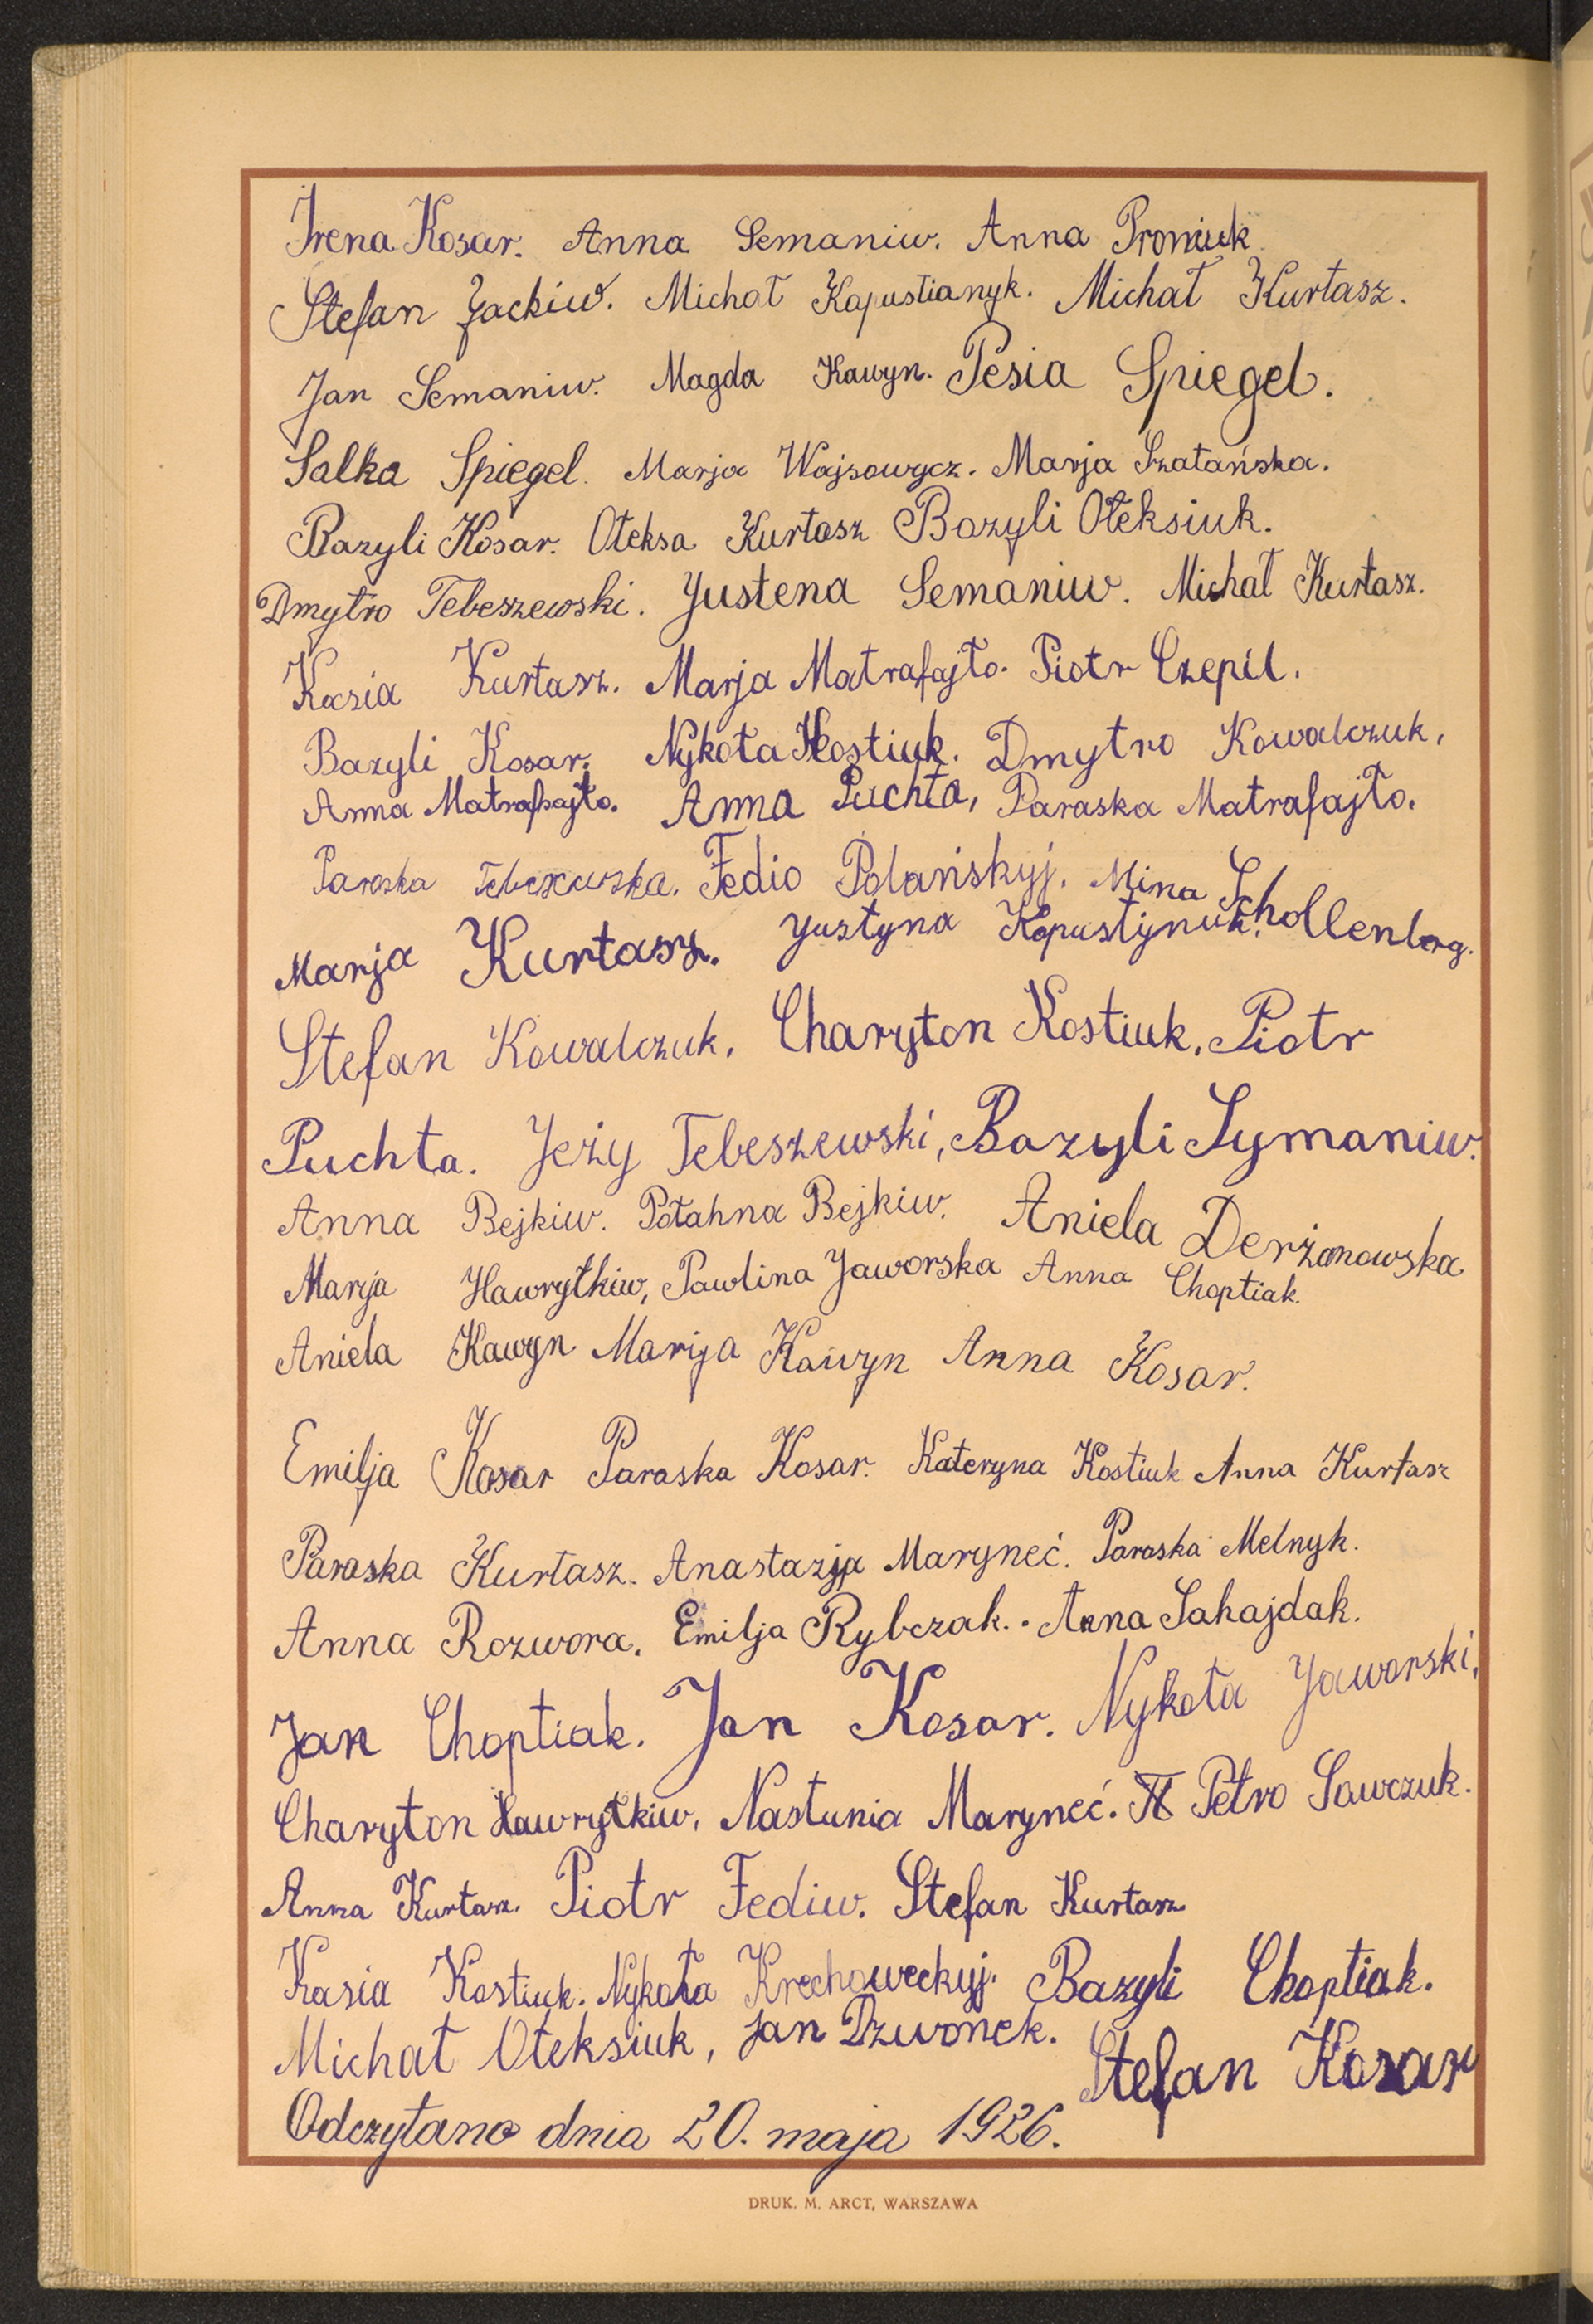 Irena Kosar. Anna Semaniw. Anna Proniuk
Stefan Jackiw. Michał Kapustianyk. Michał Kurtasz.
Jan Semaniw. Magda Kawyn. Pesia Spiegel.
Salka Spiegel. Marja Wajsowycz. Marja Szatańska.
Bazyli Kosar. Ołeksa Kurtasz Bazyli Ołeksiuk.
Dmytro Tebeszewski. Justena Semaniw. Michał Kurtasz.
Kasia Kurtasz. Marja Matrafajło. Piotr Czepil.
Bazyli Kosar. Nykoła Kostiuk. Dmytro Kowalczuk,
Anna Matrafajło. Anna Puchta, Paraska Matrafajło.
Paraska Fedio Polańskyj. Mina Schollenberg.
Marja Kurtasz. Justyna Kopustynuk.
Stefan Kowalczuk, Charyton Kostiuk, Piotr
Puchta. Jeży Tebeszewski, Bazyli Symaniw.
Anna Bejkiw. Potahna Bejkiw. Aniela Derżanowska
Marja Hawryłkiw, Pawlina Jaworska Anna Choptiak.
Aniela Kawyn Marija Kawyn Anna Kosar.
Emilja Kosar Paraska Kosar. Kateryna Kostiuk Anna Kurtasz
Paraska Kurtasz. Anastazja Maryneć. Paraska Melnyk.
Anna Rozwora. Emilja Rybczak. Anna Sahajdak.
Jan Choptiak. Jan Kosar. Nykoła Jaworski,
Charyton Hawryłkiw, Nastunia Maryneć. Petro Sawczuk.
Anna Kurtasz. Piotr Fediw. Stefan Kurtasz
Kasia Kostiuk. Nykoła Krechoweckyj. Bazyli Choptiak.
Michał Ołeksiuk, Jan Dzwonek. Stefan Kosar
Odczytano dnia 20. maja 1926.
DRUK. M. ARCT, WARSZAWA